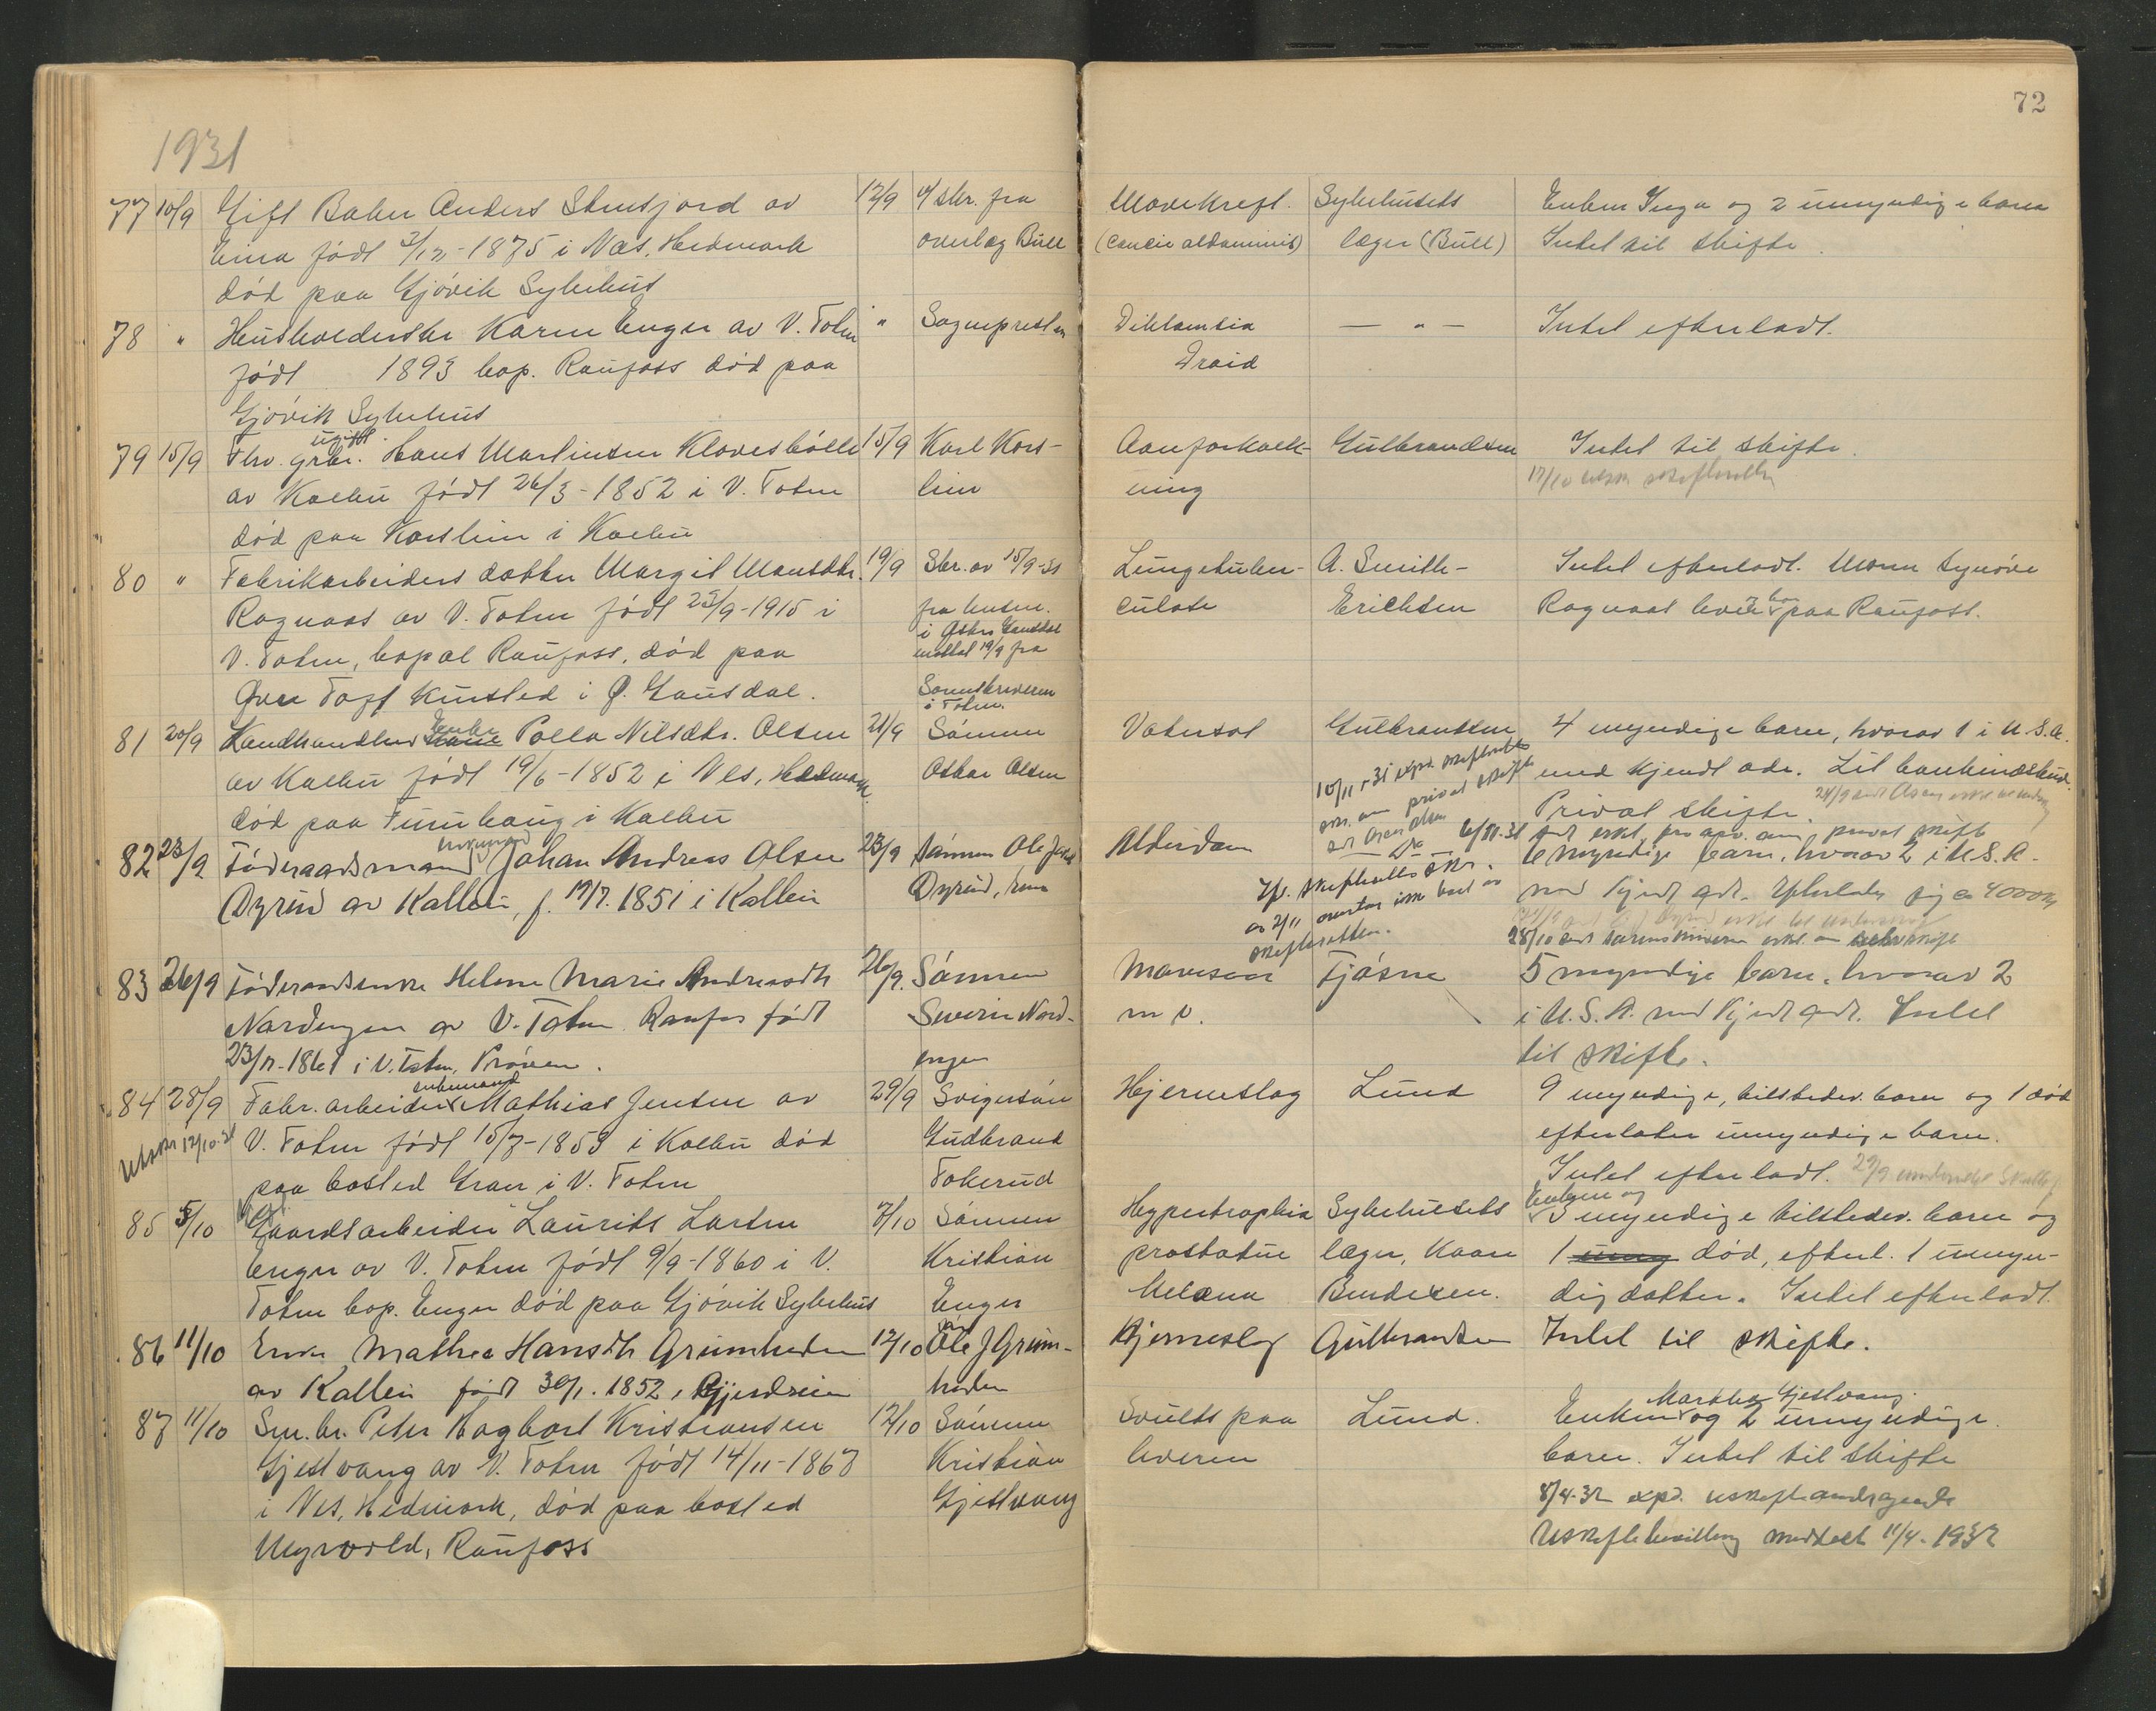 72
1931
77 10/9 Gift Baker Anders Stensjord av
Eina født 3/12-1875 i Nes, Hedmark
død paa Gjøvik Sykehus
12/9 v/ skr. fra
overlæg Bull
Mavekreft Sykehusets
læger (Bull)
Enken Inga og 2 umyndige barn
Intet til skifte.
78 " Husholderske Karen Enger av V. Toten
født 1893 bop. Raufoss død paa
Gjøvik Sykehus
" Sognepresten
— " —
Intet efterladt.
79 15/9 Fhv. ugift grbr. Hans Martinsen
av Kolbu født 26/3-1852 i V. Toten
død paa Korslien i Kolbu
15/9 Karl Kors-
lien
Aareforkalk-
ning
Gulbrandsen
Intet til skifte.
80 " Fabrikarbeiders datter Margit Hansdtr.
Rognaas av V. Toten født 25/9-1915 i
V. Toten, bopæl Raufoss, død paa
Øvre Toft kursted i Ø. Gausdal.
19/9 Skr. av 15/9-31
fra lensm.
i Østre Gausdal
mottat 19/9 fra
Sorenskriveren
i Toten.
Lungetuber-
culose
A. Smith-
Erichsen
Intet efterladt. Moren Synøve
Rognaas bor paa Raufoss.
81 20/9 Landhandler Enke Polla Nilsdtr. Olsen
av Kolbu født 19/6-1852 i Nes, Hedmark.
død paa Furuhaug i Kolbu
21/9 Sønnen
Oskar Olsen
Vatersot Gulbrandsen
4 myndige barn, hvorav 1 i U.S.A.
med kjendt adr. Litt bankinnskud.
Privat skifte.
10/11-31 exp. skifteretts
skr. om privat skifte
82 23/9 Føderaadsmand Johan Andreas Olsen
Dyrud av Kolbu, f. 17/7. 1851 i Kolbu
23/9 Sønnen Ole
Dyrud,
Alderdom
6 myndige barn, hvorav 2 i U.S.A.
med kjendt adr. Efterlater sig ca 4000 kr
28/10 sendt sorenskriveren erkl. om selvskifte
83 26/9 Føderaadsenke Helene Marie Andreasdtr
Nordengen av V. Toten Raufoss født
23/11-1861 i V. Toten, Prøven.
26/9. Sønnen
Severin Nord-
engen
Mavesaar
m.v.
Tjøsne
5 myndige barn, hvorav 2
i U.S.A. med kjendt adr. Intet
til skifte.
84 28/9 Fabr. arbeider enkemand Mathias Jensen av
V. Toten født 15/7-1853 i Kolbu død
paa bosted Gran i V. Toten
Utskr 12/10-31
29/9 Svigersøn
Gudbrand
Fokerud
Hjerneslag Lund
9 myndige, tilstedev. barn og 1 død
efterlater umyndige barn.
Intet efterladt.
85 5/10 Gift Gaardsarbeider Laurits Larsen
Enger av V. Toten født 9/9-1860 i V.
Toten bop. Enger død paa Gjøvik Sykehus
7/10 Sønnen
Kristian
Enger
Hypertrophia
prostatae
Melæna
Sykehusets
læger, Kaare
Bendixen.
Enken og
5 myndige tilstedev. barn og
1 død, efterl. 1 umyn-
dig datter. Intet efterladt.
86 11/10 Enke Mathea Hansdtr Grimheden
av Kolbu født 30/1. 1852 i
12/10 Søn Ole J Grim-
heden
Hjerneslag Gulbrandsen Intet til skifte.
87 11/10 Sm.br. Peter Hagbart Kristiansen
Gjestvang av V. Toten født 14/11-1867
i Nes, Hedmark, død paa bosted
Myrvold, Raufoss
12/10 Sønnen
Kristian
Gjestvang
Svulst paa
leveren
Lund.
Enken Marthea Gjestvang og 2 umyndige
barn. Intet til skifte
8/4-32 exp. uskifteandragende
Uskiftebevilling meddelt 11/4-1932